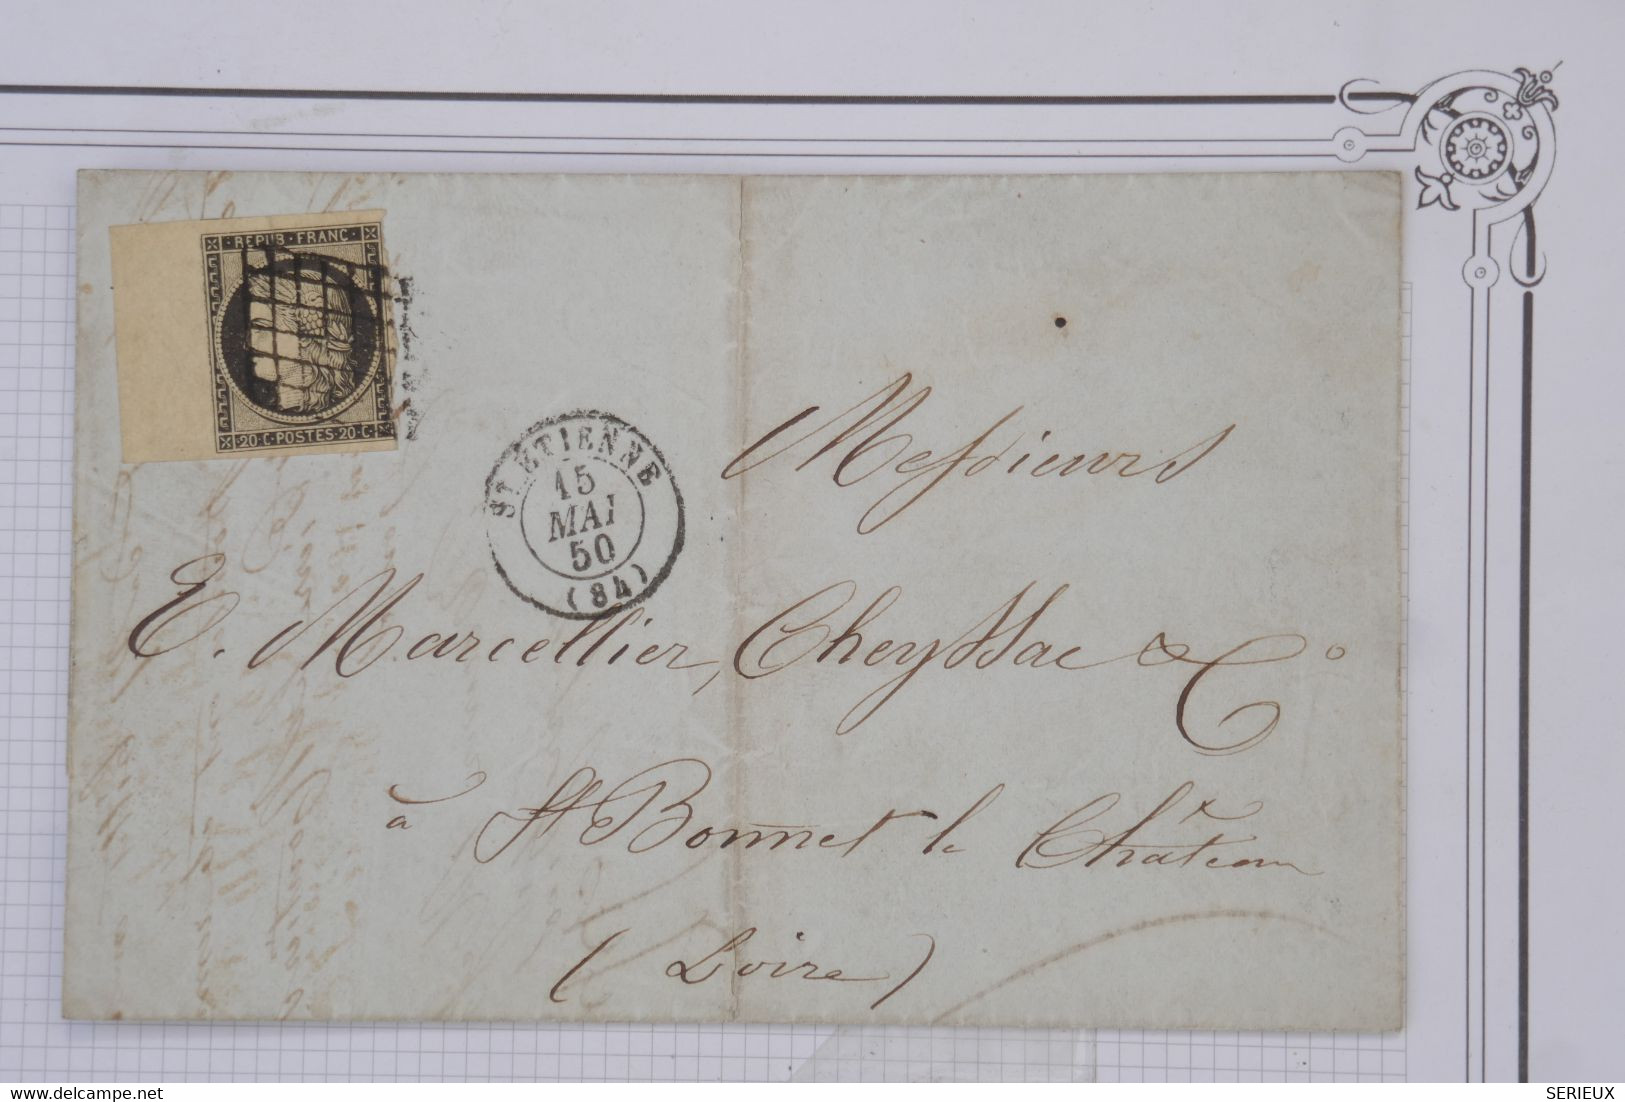 REPUB·FRANC·
20·C·POSTES·20·C·
ST ETIENNE
15
MAI
50
(84)
Messieurs
E. Marcellier, Cheyssac & Cº
à St Bonnet le Château
(Loire)
www.delcampe.net
SERIEUX